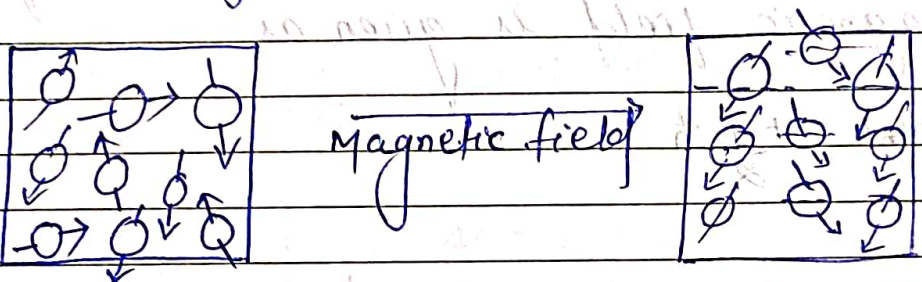 Magnetic field